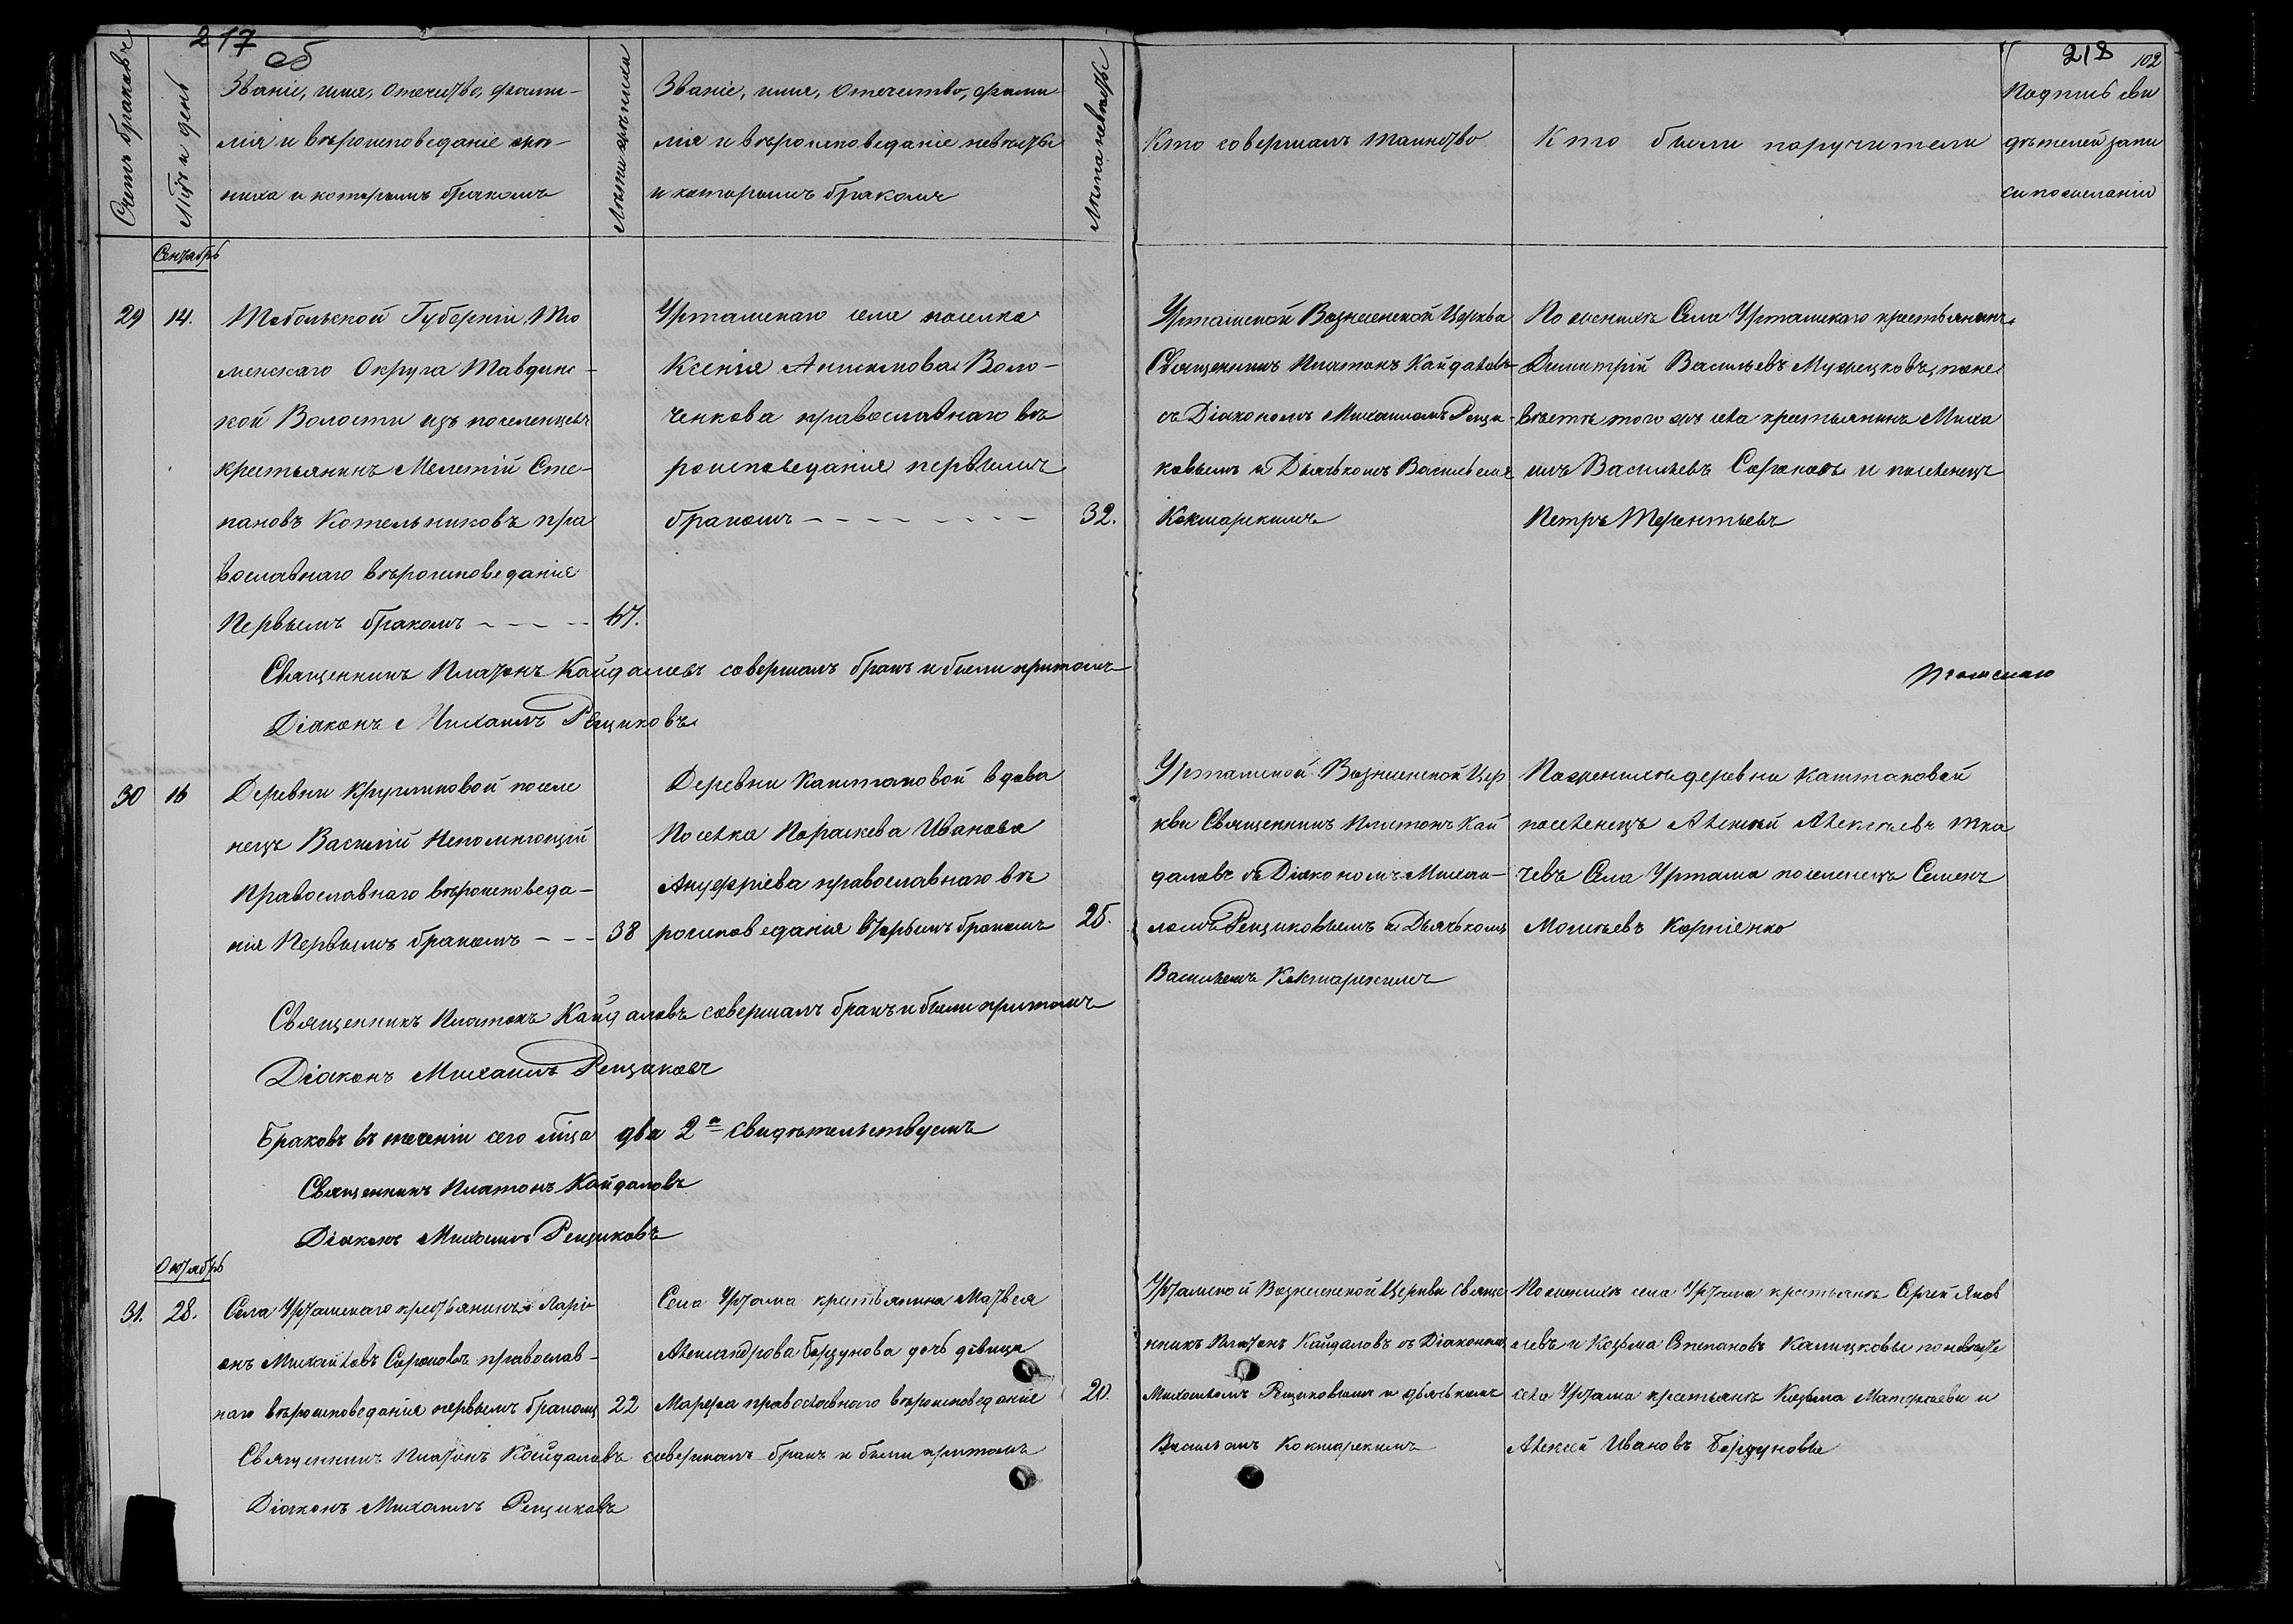 217
об
218
102
Счетъ браковъ
Мѣсяцъ и день
Званіе, имя, отечество, фами-
лія и вѣроисповеданіе же-
ниха и которымъ бракомъ
Лѣта жениха
Званіе, имя, отечество, фами
лія и вѣроисповеданіе невѣсты
и которымъ бракомъ
Лѣта невѣсты
Кто совершалъ таинство
Кто были поручители
Подпись сви
дѣтелей запи
си по желанію
Сентябрь
29
14.
Тобольской Губерніи, Тю
менскаго Округа Тавдинс-
кой Волости изъ поселенцевъ
крестьянинъ Мелетій Сте-
пановъ Котельниковъ пра
вославнаго вѣроисповеданія
Первымъ бракомъ - - - -
47.
Урташскаго села поселка
Ксенія Анисимова Воло-
ченкова православнаго вѣ
роисповеданія первымъ
бракомъ - - - - - - -
32.
Урташской Вознесенской Церкви
Священникъ Платонъ Кайдаловъ
съ Діакономъ Михаиломъ Рещи-
ковымъ и Дьячкомъ Васильемъ
Кокшарскимъ
По женихѣ Села Урташскаго крестьянинъ
Димитрій Васильевъ, поне
вѣстѣ того жъ села крестьянинъ Миха
илъ Васильевъ Сороковъ и поселенецъ
Петръ Терентьевъ
Священникъ Платонъ Кайдаловъ совершалъ бракъ и были притомъ
Діаконъ Михаилъ Рещиковъ
30
16
Деревни Кругликовой поселе
нецъ Василій Непомнющій
Православнаго вѣроисповеда-
нія Первымъ бракомъ - - -
38
Деревни Каштаковой вдова
Поселка Параскева Иванова
Ануфріева православнаго вѣ
роисповеданія вторымъ бракомъ
25.
Урташской Вознесенской Цер
кви Священникъ Платонъ Кай
даловъ съ Діакономъ Михаи-
ломъ Рещиковымъ и Дьячкомъ
Васильемъ Кокшарскимъ
По женихѣ деревни Каштаковой
поселенецъ Алексѣй Алексѣевъ Тка
чевъ Села Урташа поселенецъ Семенъ
Моисѣевъ Корніенко
Священникъ Платонъ Кайдаловъ совершалъ бракъ и были притомъ
Діаконъ Михаилъ Рещиковъ
Браковъ въ теченіи сего мѣца два 2ª свидѣтельствуемъ
Священникъ Платонъ Кайдаловъ
Діаконъ Михаилъ Рещиковъ
Октябрь
31.
28.
Села Урташскаго крестьянинъ Ларі
онъ Михайловъ Сороковъ православ-
наго вѣроисповеданія первымъ бракомъ
22
Села Урташа крестьянина Матвея
Александрова Борзунова дочь девица
Марфа православнаго вѣроисповеданіе
20.
Урташской Вознесенской Церкви Священ
никъ Платонъ Кайдаловъ съ Діакономъ
Михаиломъ Рещиковымъ и дьячкомъ
Васильемъ Кокшарскимъ
По женихѣ села Урташа крестьянъ Сергей Яков
левъ и Козьма Степановъ Калицковы по невѣсте
села Урташа крестьянъ Козьма и
Алексей Ивановъ Борзуновы
Священникъ Платонъ Кайдаловъ совершалъ бракъ и были притомъ
Діаконъ Михаилъ Рещиковъ